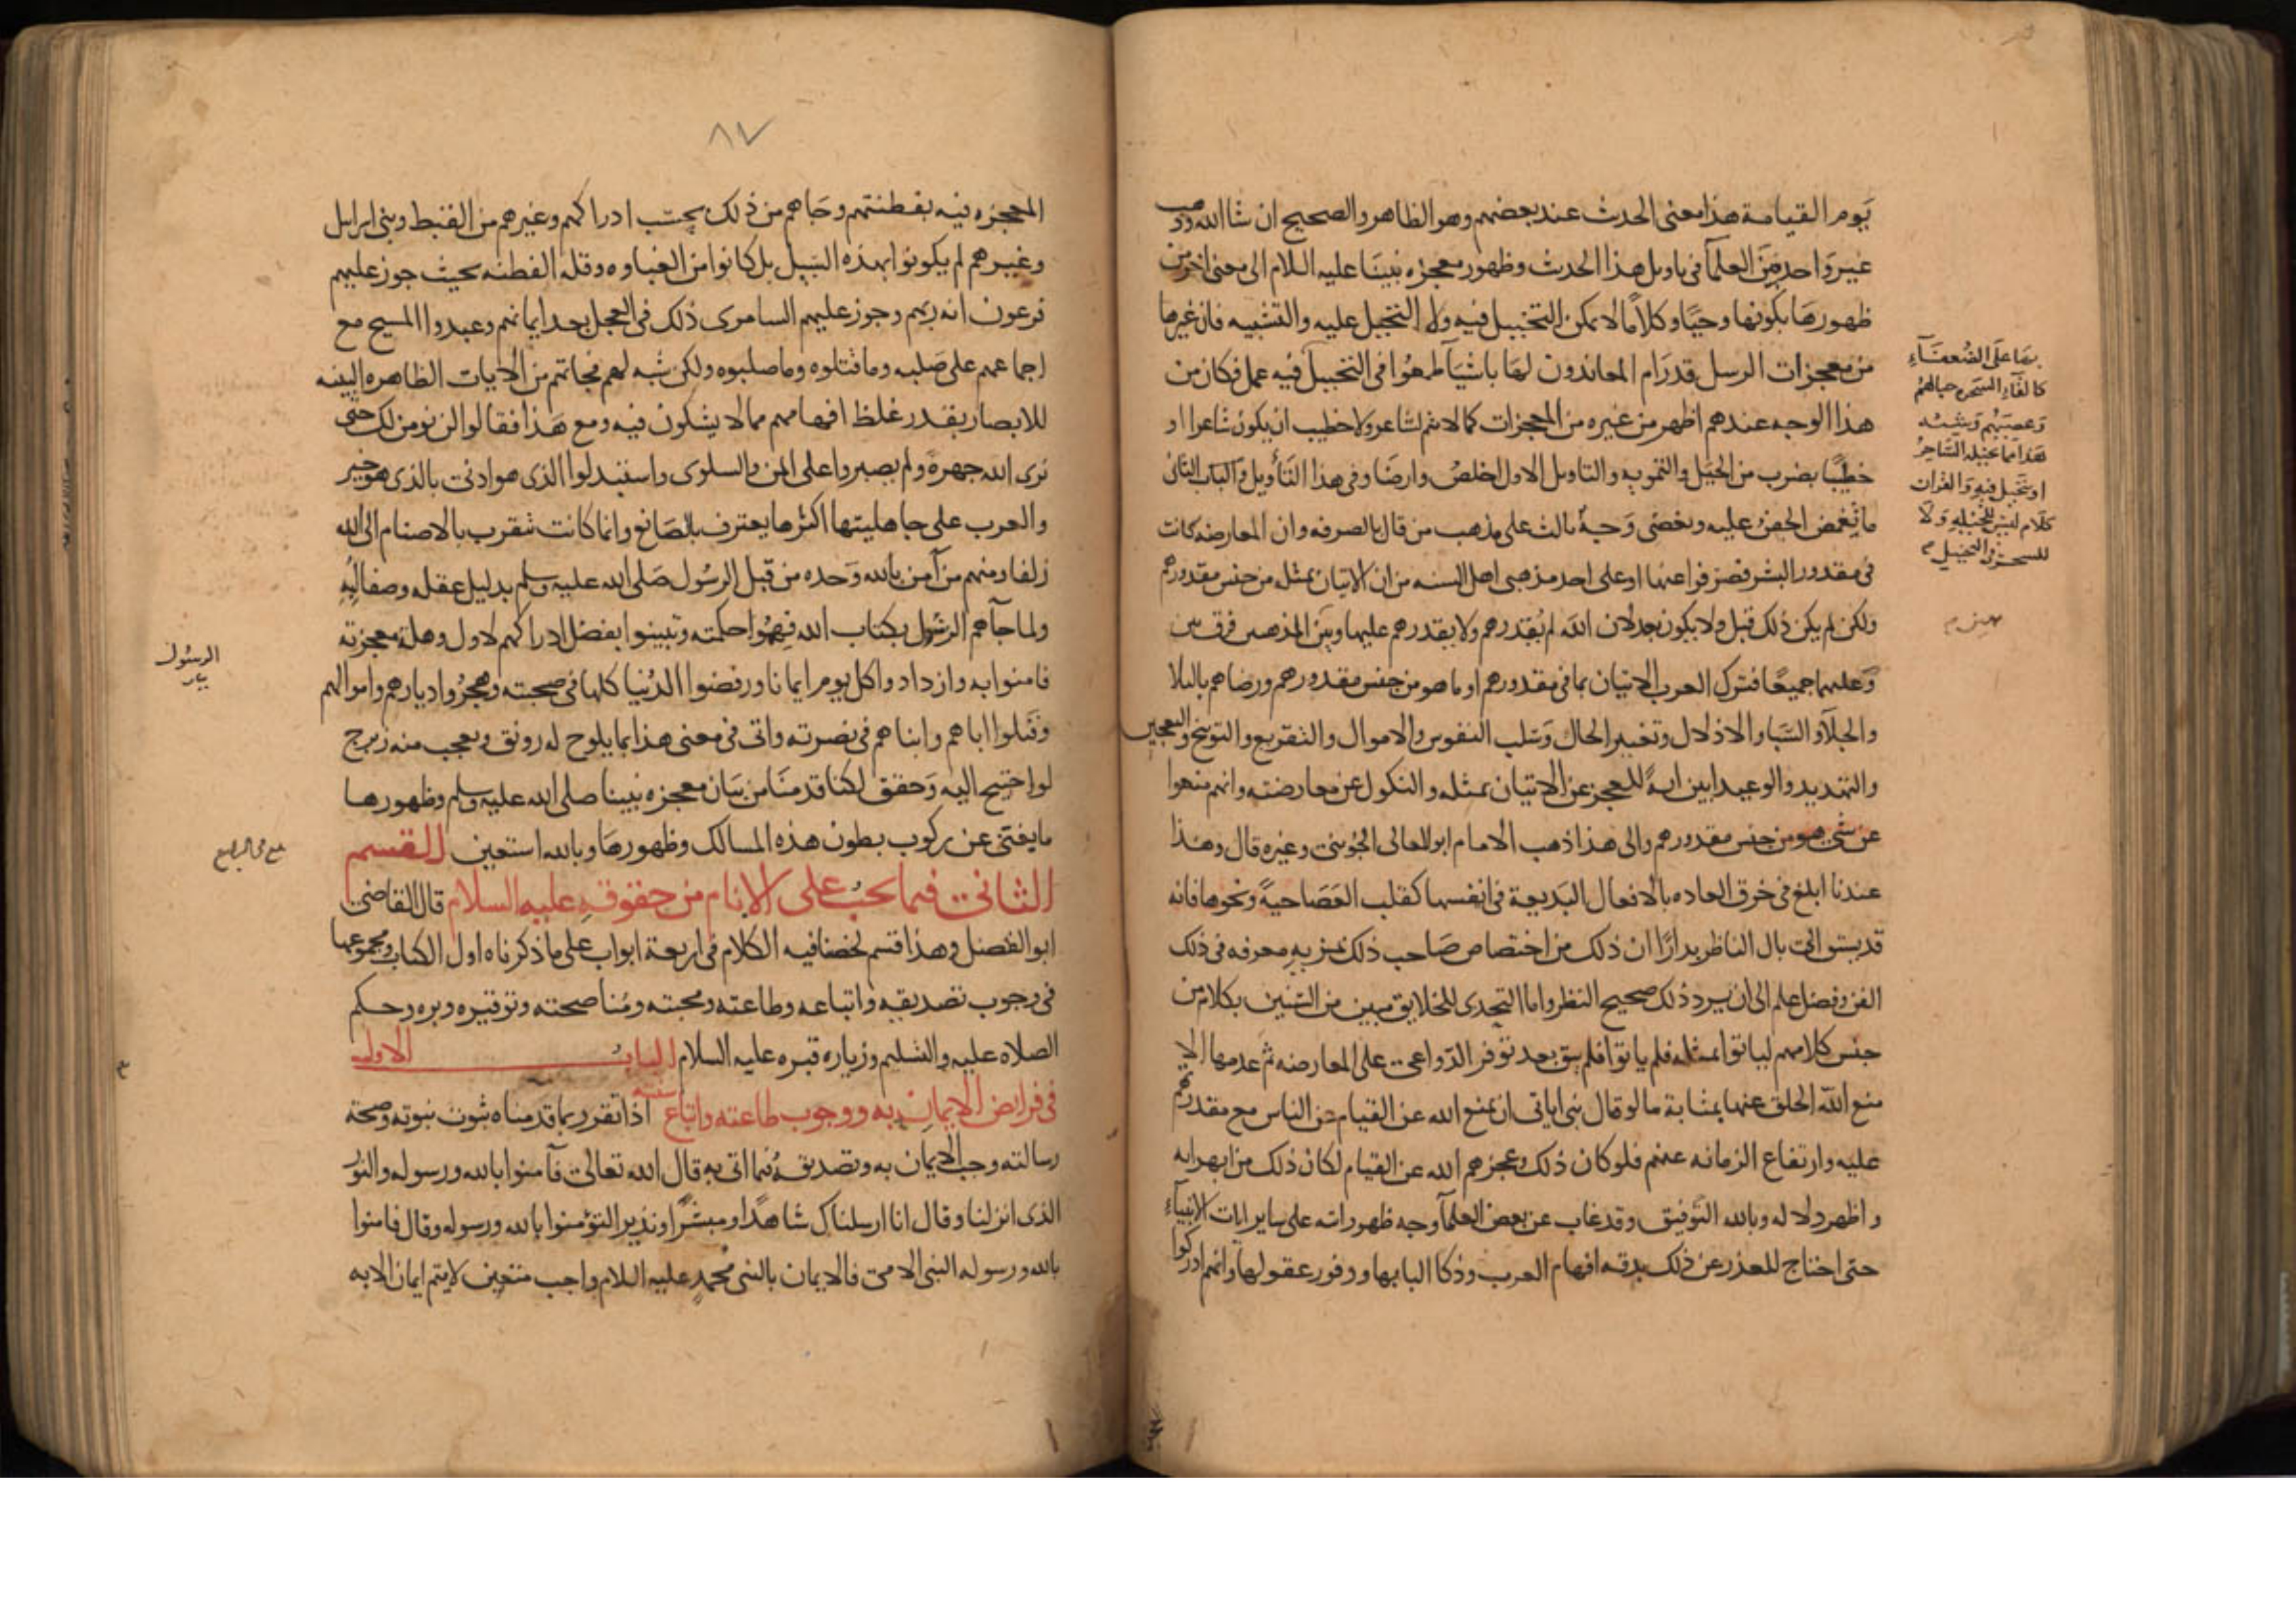 يوم القيامة هذا معنى الحديث عند بعضهم وهو الظاهر والصحيح ان شا الله وذهب
غير واحد من العلمآ فى تاويل هذا الحديث وظهور معجزه نبينا عليه السلام الى معنى اخر من
ظهورها بكونها وحيًا وكلامًا لا يمكن التخييل فيه ولا التحيل عليه والتشبيه فان غيرها
من معجزات الرسل قد رام المعاندون لها باشيآ طمعوا فى التخييل فيه عمل فكان من
هذا الوجه عندهم اظهر من غيره من المعجزات كما لا يتم لشاعر ولا خطيب ان يكون شاعرا او
خطيبًا بضرب من الحيل والتمويه والتاويل الاول اخلص وارضا وفى هذا التأويل الثانى
ما يغمض الجفن عليه ويغضى وجه ثالث على مذهب من قال بالصرفه وان المعارضه كانت
فى مقدور البشر فصرفوا عنها او على احد مذهبى اهل السنه من ان الاتيان بمثله من جنس مقدورهم
ولكن لم يكن ذلك قبل ولا يكون بعد لان الله لم يقدرهم ولا يقدرهم عليها وبين المذهبين فرق بين
وعليهما جميعًا فترك العرب الاتيان بما فى مقدورهم او ما هو من جنس مقدورهم ورضاهم بالبلا
والجلآ والسبا والاذلال وتغيير الحال وسلب النفوس والاموال والتقريع والتوبيخ والتعجيز
والتهديد والوعيد ابين ايه للعجز عن الاتيان بمثله والنكول عن معارضته وانهم منعوا
عن شى هو من جنس مقدورهم والى هذا ذهب الامام ابو المعالى الجوينى وغيره قال وهذا
عندنا ابلغ فى خرق العاده بالافعال البديعة فى انفسها كقلب العصا حية ونحوها فانه
قد يسبق الى بال الناظر بدارًا ان ذلك من اختصاص صاحب ذلك بمزيه معرفه فى ذلك
الفن وفضل علم الى ان يرد ذلك صحيح النظر واما التحدى للخلايق مبين من السنين بكلام من
جنس كلامهم لياتوا بمثله فلم ياتوا فلم يبق بعد توفر الدواعى على المعارضه ثم عدمها الا
منع الله الخلق عنها بمثابة ما لو قال نبى اياتى ان يمنع الله عن القيام عن الناس مع مقدرتهم
عليه وارتفاع الزمانه عنهم فلو كان ذلك وعجزهم الله عن القيام لكان ذلك من ابهر ايه
واظهر دلاله وبالله التوفيق وقد غاب عن بعض العلمآ وجه ظهور اته على ساير ايات الانبيآء
حتى احتاج للعذر عن ذلك بدقه افهام العرب وذكا البابها ووفور عقولها وانهم ادركوا
بها على الضعفآء
كالقآء السحره حبالهم
وعصيهم وشبه
هذا مما يخيله الساحر
او يتحيل فيه والقران
كلام ليس للحيله ولا
للسحر والتخييل
٨٧
المعجزه فيه بفطنتهم وجاهم من ذلك بحسب ادراكهم وغيرهم من القبط وبنى اسرايل
وغيرهم لم يكونوا بهذه السبيل بل كانوا من الغباوه وقله الفطنه بحيث جوز عليهم
فرعون انه ربهم وجوز عليهم السامرى ذلك فى العجل بعد ايمانهم وعبدوا المسيح مع
اجماعهم على صلبه وما قتلوه وما صلبوه ولكن شبه لهم فجاتهم من الايات الظاهره البينه
للابصار بقدر غلظ افهامهم مما لا يشكون فيه ومع هذا فقالوا لن نومن لك حتى
نرى الله جهرة ولم يصبروا على المن والسلوى واستبدلوا الذى هو ادنى بالذى هو خير
والعرب على جاهليتها اكثرها يعترف بالصانع وانما كانت تتقرب بالاصنام الى الله
زلفا ومنهم من آمن بالله وحده من قبل الرسول صلى الله عليه وسلم بدليل عقله وصفا لبه
ولما جآهم الرسول بكتاب الله فهموا حكمته وتبينوا بفضل ادراكهم لاول وهلة معجزته
فامنوا به وازدادوا كل يوم ايمانا ورفضوا الدنيا كلها فى صحبته وهجروا ديارهم واموالهم
وقتلوا اباهم وابناهم فى نصرته واتى فى معنى هذا بما يلوح له رونق ويعجب منه زبرج
لو احتيج اليه وحقق لكنا قدمنا من بيان معجزه نبينا صلى الله عليه وسلم وظهورها
ما يغنى عن ركوب بطون هذه المسالك وظهورها وبالله استعين القسم
الثانى فيما يجب على الانام من حقوقه عليه السلام قال القاضى
ابو الفضل وهذا قسم لخصنا فيه الكلام فى اربعة ابواب على ما ذكرناه اول الكتاب ومجموعها
فى وجوب تصديقه واتباعه وطاعته ومحبته ومناصحته وتوقيره وبره وحكم
الصلاه عليه والتسليم وزياره قبره عليه السلام الباب الاول
فى فرايض الايمان به ووجوب طاعته واتباع سنته اذا تقرر بما قدمناه ثبوت نبوته وصحة
رسالته وجب الايمان به وتصديقه فيما اتى به قال الله تعالى فآمنوا بالله ورسوله والنور
الذى انزلنا وقال انا ارسلناك شاهدًا ومبشرًا ونذيرا لتؤمنوا بالله ورسوله وقال فامنوا
بالله ورسوله النبى الامى فالايمان بالنبى محمد عليه السلام واجب متعين لا يتم ايمان الا به
الرسول